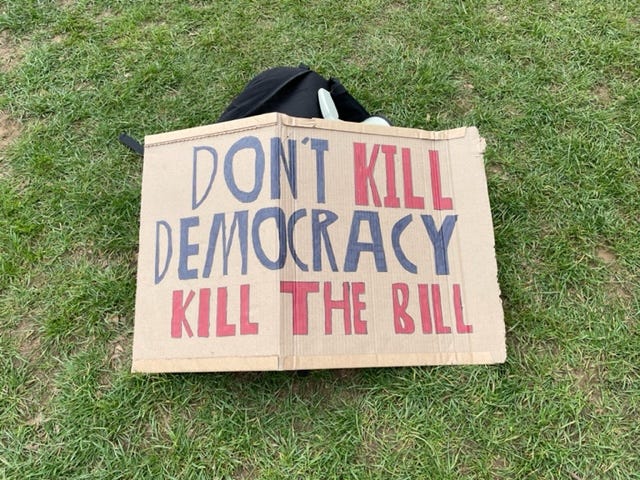 DON'T KILL
DEMOCRACY
KILL THE BILL